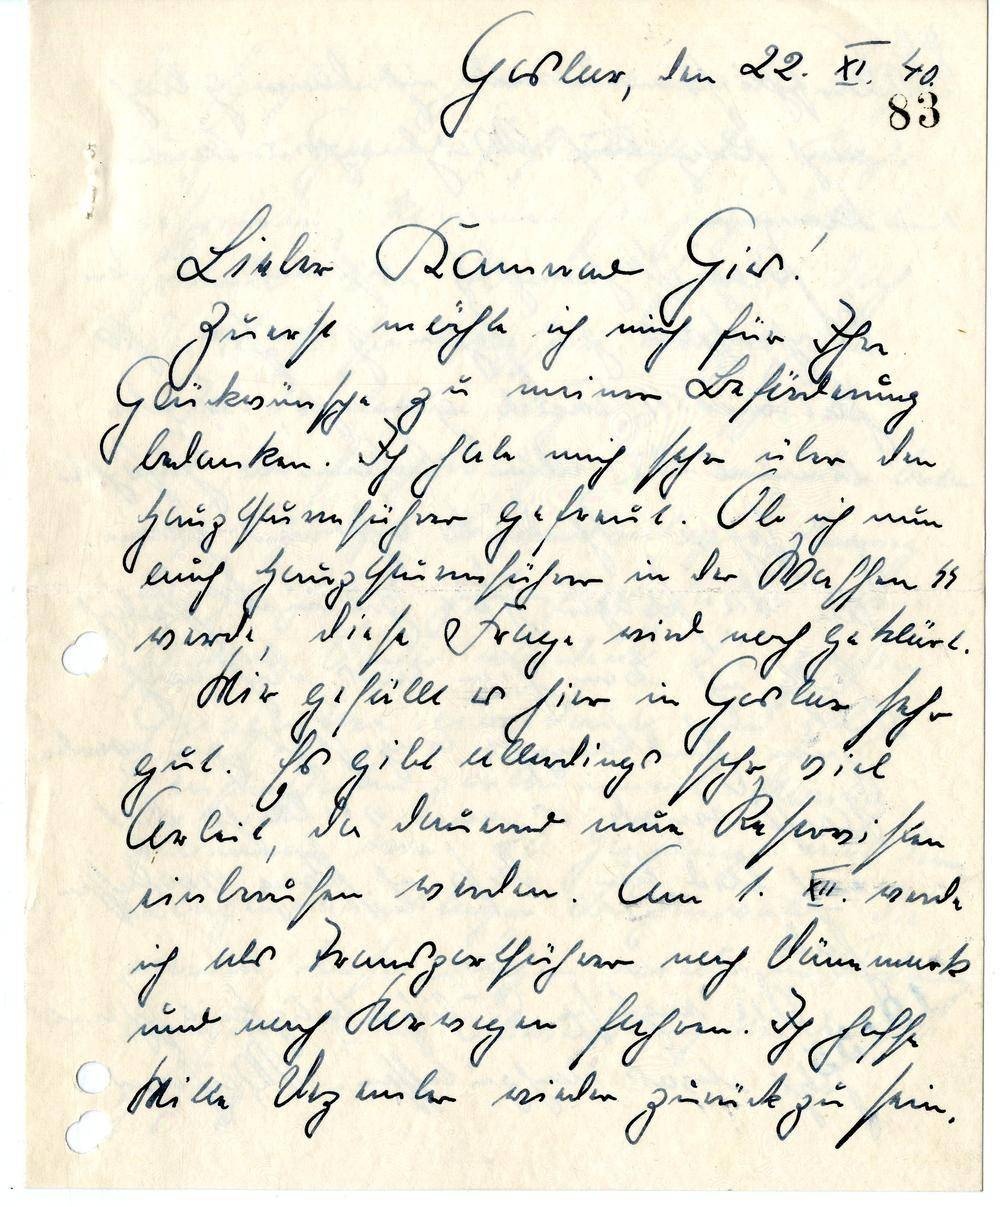 Goslar, den 22. XI. 40.
83
Lieber Kamerad Gies!
Zuerst möchte ich mich für Ihre
Glückwünsche zu meiner Beförderung
bedanken. Ich habe mich sehr über den
Hauptsturmführer gefreut. Ob ich nun
auch Hauptsturmführer in der Waffen SS
werde, diese Frage wird noch geklärt.
Mir gefällt es hier in Goslar sehr
gut. Es gibt allerdings sehr viel
Arbeit, da dauernd neue Reservisten
einberufen werden. Am 1. XII. werde
ich als Transportführer nach Dänemark
und nach Norwegen fahren. Ich hoffe
Mitte Dezember wieder zurück zu sein.